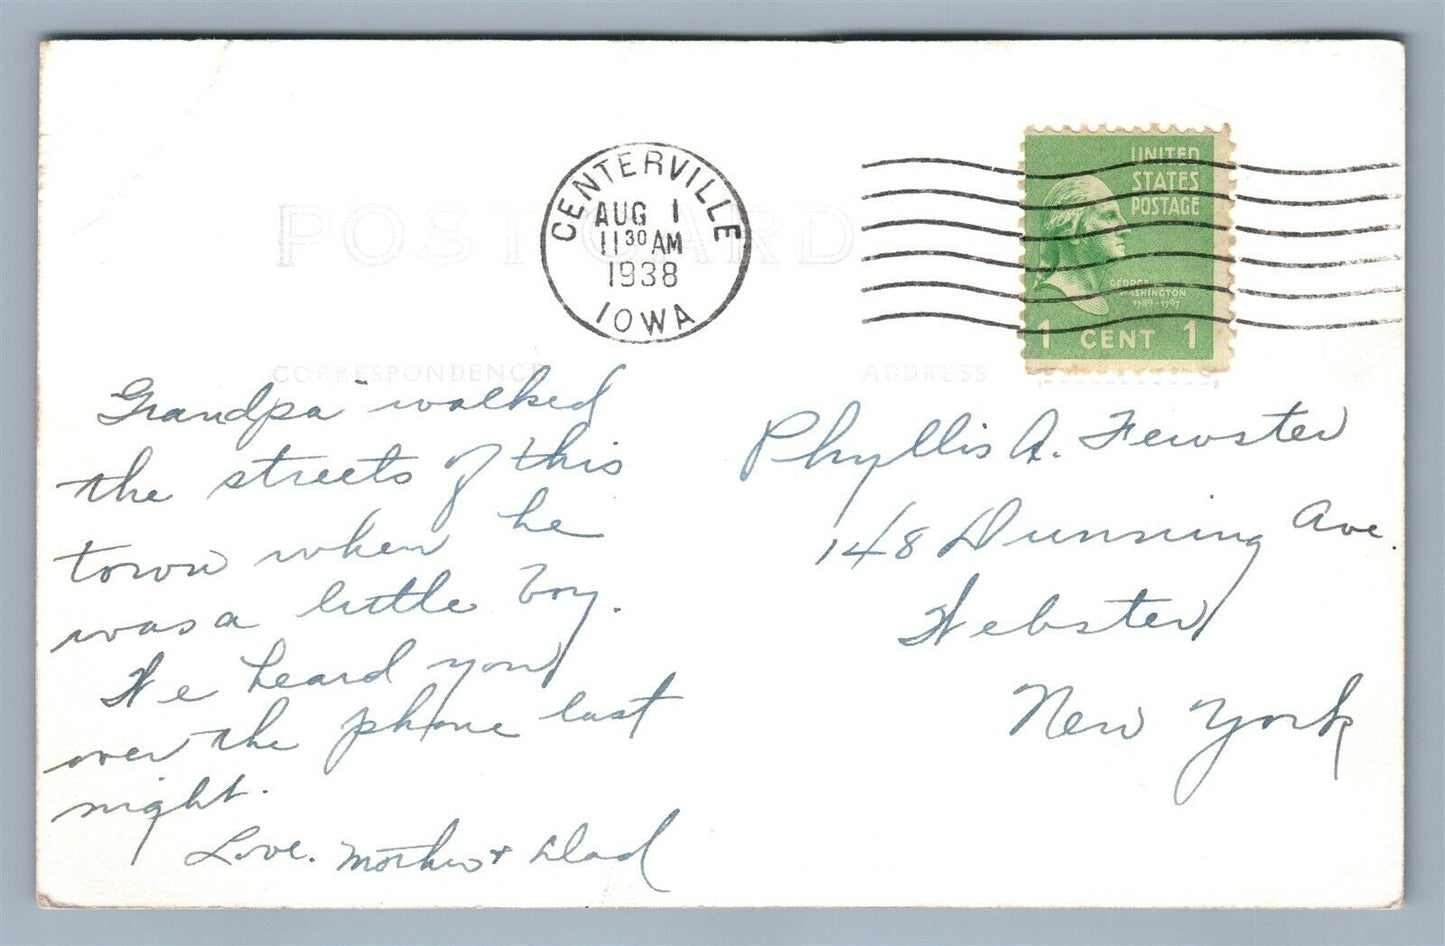 POST CARD
CENTERVILLE
AUG 1
11 30 AM
1938
IOWA
UNITED
STATES
POSTAGE
GEORGE
WASHINGTON
1789-1797
1 CENT 1
CORRESPONDENCE
ADDRESS
Grandpa walked
the streets of this
town when he
was a little boy.
We heard you
over the phone last
night.
Love. Mother & Dad
Phyllis A. Fewster
148 Dunning Ave.
Webster
New York